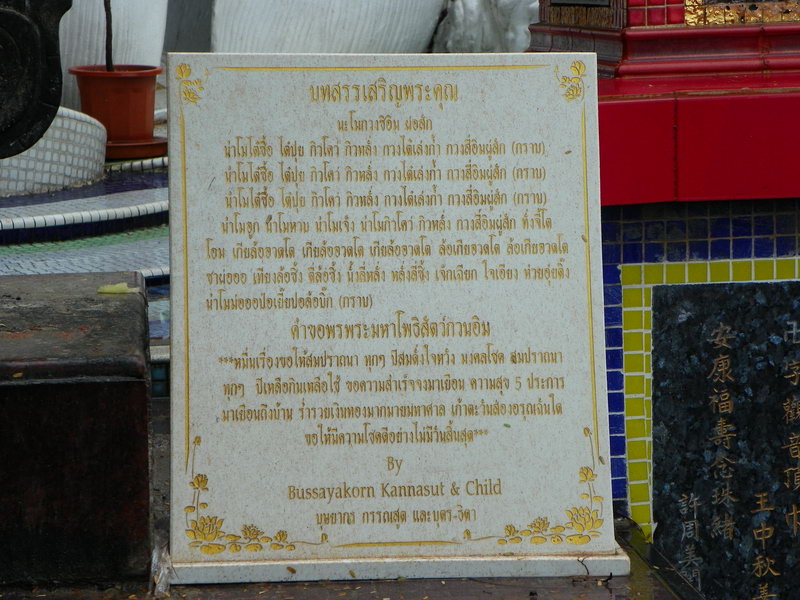 บทสรรเสริญพระคุณ
นะโมกวงซิอิม ผ่อสัก
นำโมไต่ชื้อ ไต่ปุย กิวโคว่ กิวหลั่ง กวงไต๋เล่งก้ำ กวงสี่อิมผู่สัก (กราบ)
นำโมไต่ชื้อ ไต่ปุย กิวโคว่ กิวหลั่ง กวงไต๋เล่งก้ำ กวงสี่อิมผู่สัก (กราบ)
นำโมไต่ชื้อ ไต่ปุย กิวโคว่ กิวหลั่ง กวงไต๋เล่งก้ำ กวงสี่อิมผู่สัก (กราบ)
นำโมฮูก นำโมหวบ นำโมเจ็ง นำโมกิวโคว่ กิวหลั่ง กวงสี่อิมผู่สัก ทั่งจี้โต
โอม เกียล้อฮวดโต เกียล้อฮวดโต เกียล้อฮวดโต ล้อเกียฮวดโต ล้อเกียฮวดโต
ซาผ่อออ เทียงล้อซิ้ง ตี่ล้อซิ้ง นั้งลี่หลั่ง หลั่งลี่ซิ้ง เจ็กเฉียก ใจเอียง ห่วยอุ่ยติ๊ง
นำโมม่อออป่อเยี๊ยปอล้อบิ๊ก (กราบ)
คำขอพรพระมหาโพธิสัตว์กวนอิม
***หมื่นเรื่องขอให้สมปรารถนา ทุกๆ ปีสมดั่งใจหวัง มงคลโชค สมปรารถนา
ทุกๆ ปีเหลือกินเหลือใช้ ขอความสำเร็จจงมาเยือน ความสุข 5 ประการ
มาเยือนถึงบ้าน ร่ำรวยเงินทองมากมายมหาศาล เก้าตะวันส่องอรุณฉันใด
ขอให้มีความโชคดีอย่างไม่มีวันสิ้นสุด***
By
Bussayakorn Kannasut & Child
บุษยากร กรรณสูต และบุตร-ธิดา
安康福壽念珠緒
許周美
王中秋
觀音頂巾